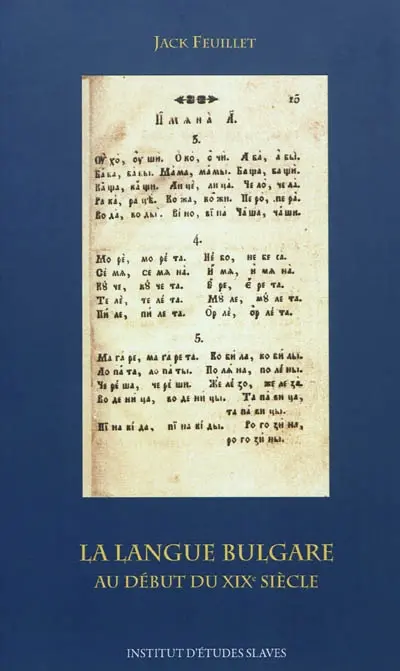 JACK FEUILLET
15
Имѧна̀ А҃.
3.
Оу҆ хо, ѹ ши. О ко, о чи. А ба, а бы.
Ба ба, ба бы. Ма ма, ма мы. Ба ща, ба щи.
Ка ша, ка ши. Ли це, ли ца. Че ло, че ла.
Ра ка, ра цѣ. Ко жа, ко жи. Пе ро, пе ра.
Во да, во ды. Ви но, ви на. Ча ша, ча ши.
4.
Мо ре, мо ре та. Не бо, не бе са.
Се мѧ, се мѧ на. И мѧ, и мѧ на.
Кꙋ че, кꙋ че та. Е ре, Е ре та.
Те ле, те ле та. Мꙋ ле, мꙋ ле та.
Пи ле, пи ле та. Ор ле, ор ле та.
5.
Ма га ре, ма га ре та. Ко би ла, ко би лы.
Ло па та, ло па ты. По лѧ на, по лѧ ны.
Че ре ша, че ре ши. Же ле зо, же ле за.
Во де ни ца, во де ни цы. Та па ви ца,
та па ви цы.
Пї на ві да, пї на ві ды. Ро го зи на,
ро го зи ны.
LA LANGUE BULGARE
AU DÉBUT DU XIXe SIÈCLE
INSTITUT D'ÉTUDES SLAVES